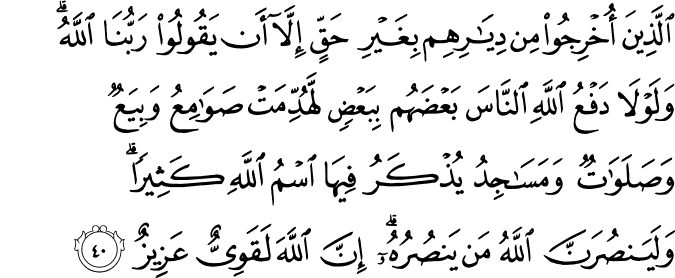 ٱلَّذِينَ أُخْرِجُوا۟ مِن دِيَـٰرِهِم بِغَيْرِ حَقٍّ إِلَّآ أَن يَقُولُوا۟ رَبُّنَا ٱللَّهُ ۗ
وَلَوْلَا دَفْعُ ٱللَّهِ ٱلنَّاسَ بَعْضَهُم بِبَعْضٍ لَّهُدِّمَتْ صَوَٰمِعُ وَبِيَعٌ
وَصَلَوَٰتٌ وَمَسَـٰجِدُ يُذْكَرُ فِيهَا ٱسْمُ ٱللَّهِ كَثِيرًا ۗ
وَلَيَنصُرَنَّ ٱللَّهُ مَن يَنصُرُهُۥٓ ۗ إِنَّ ٱللَّهَ لَقَوِىٌّ عَزِيزٌ ٤٠